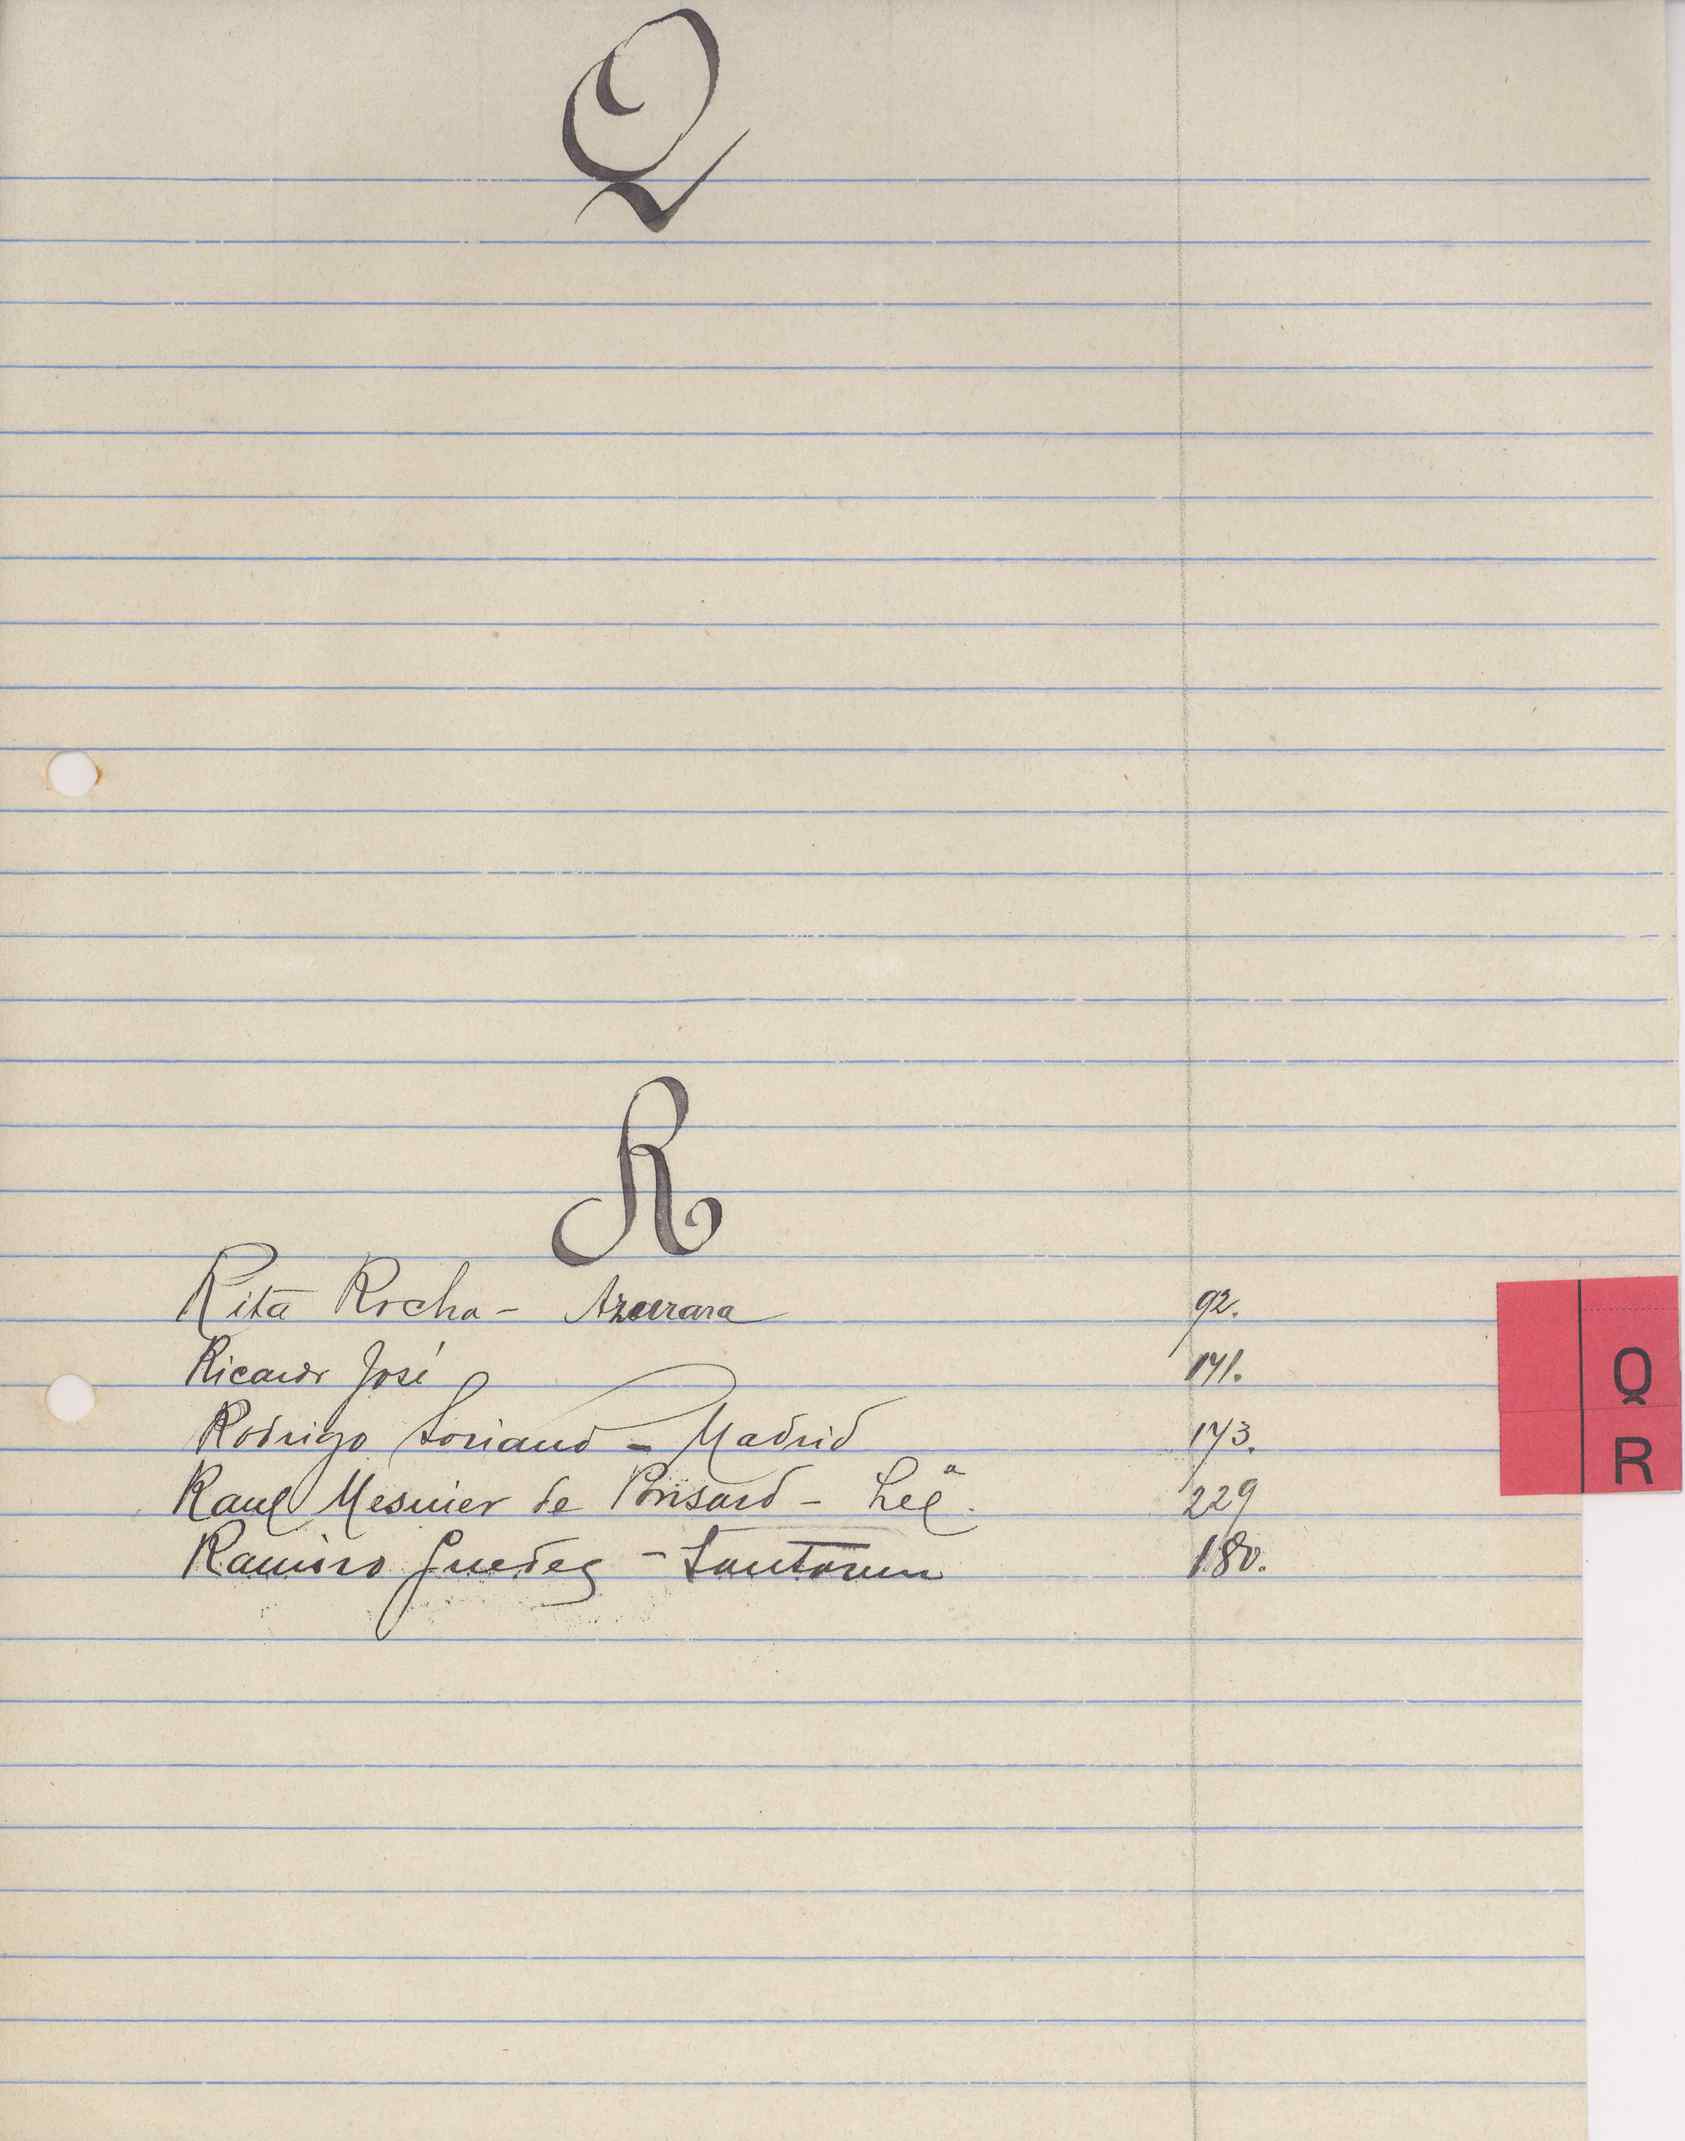 Q
R
Rita Rocha - Azurara 92.
Ricardo José 171.
Rodrigo Soriano - Madrid 173.
Raul Mesnier de Ponsard - Lxª. 229
Ramiro Guedes - Santarem 180.
Q
R